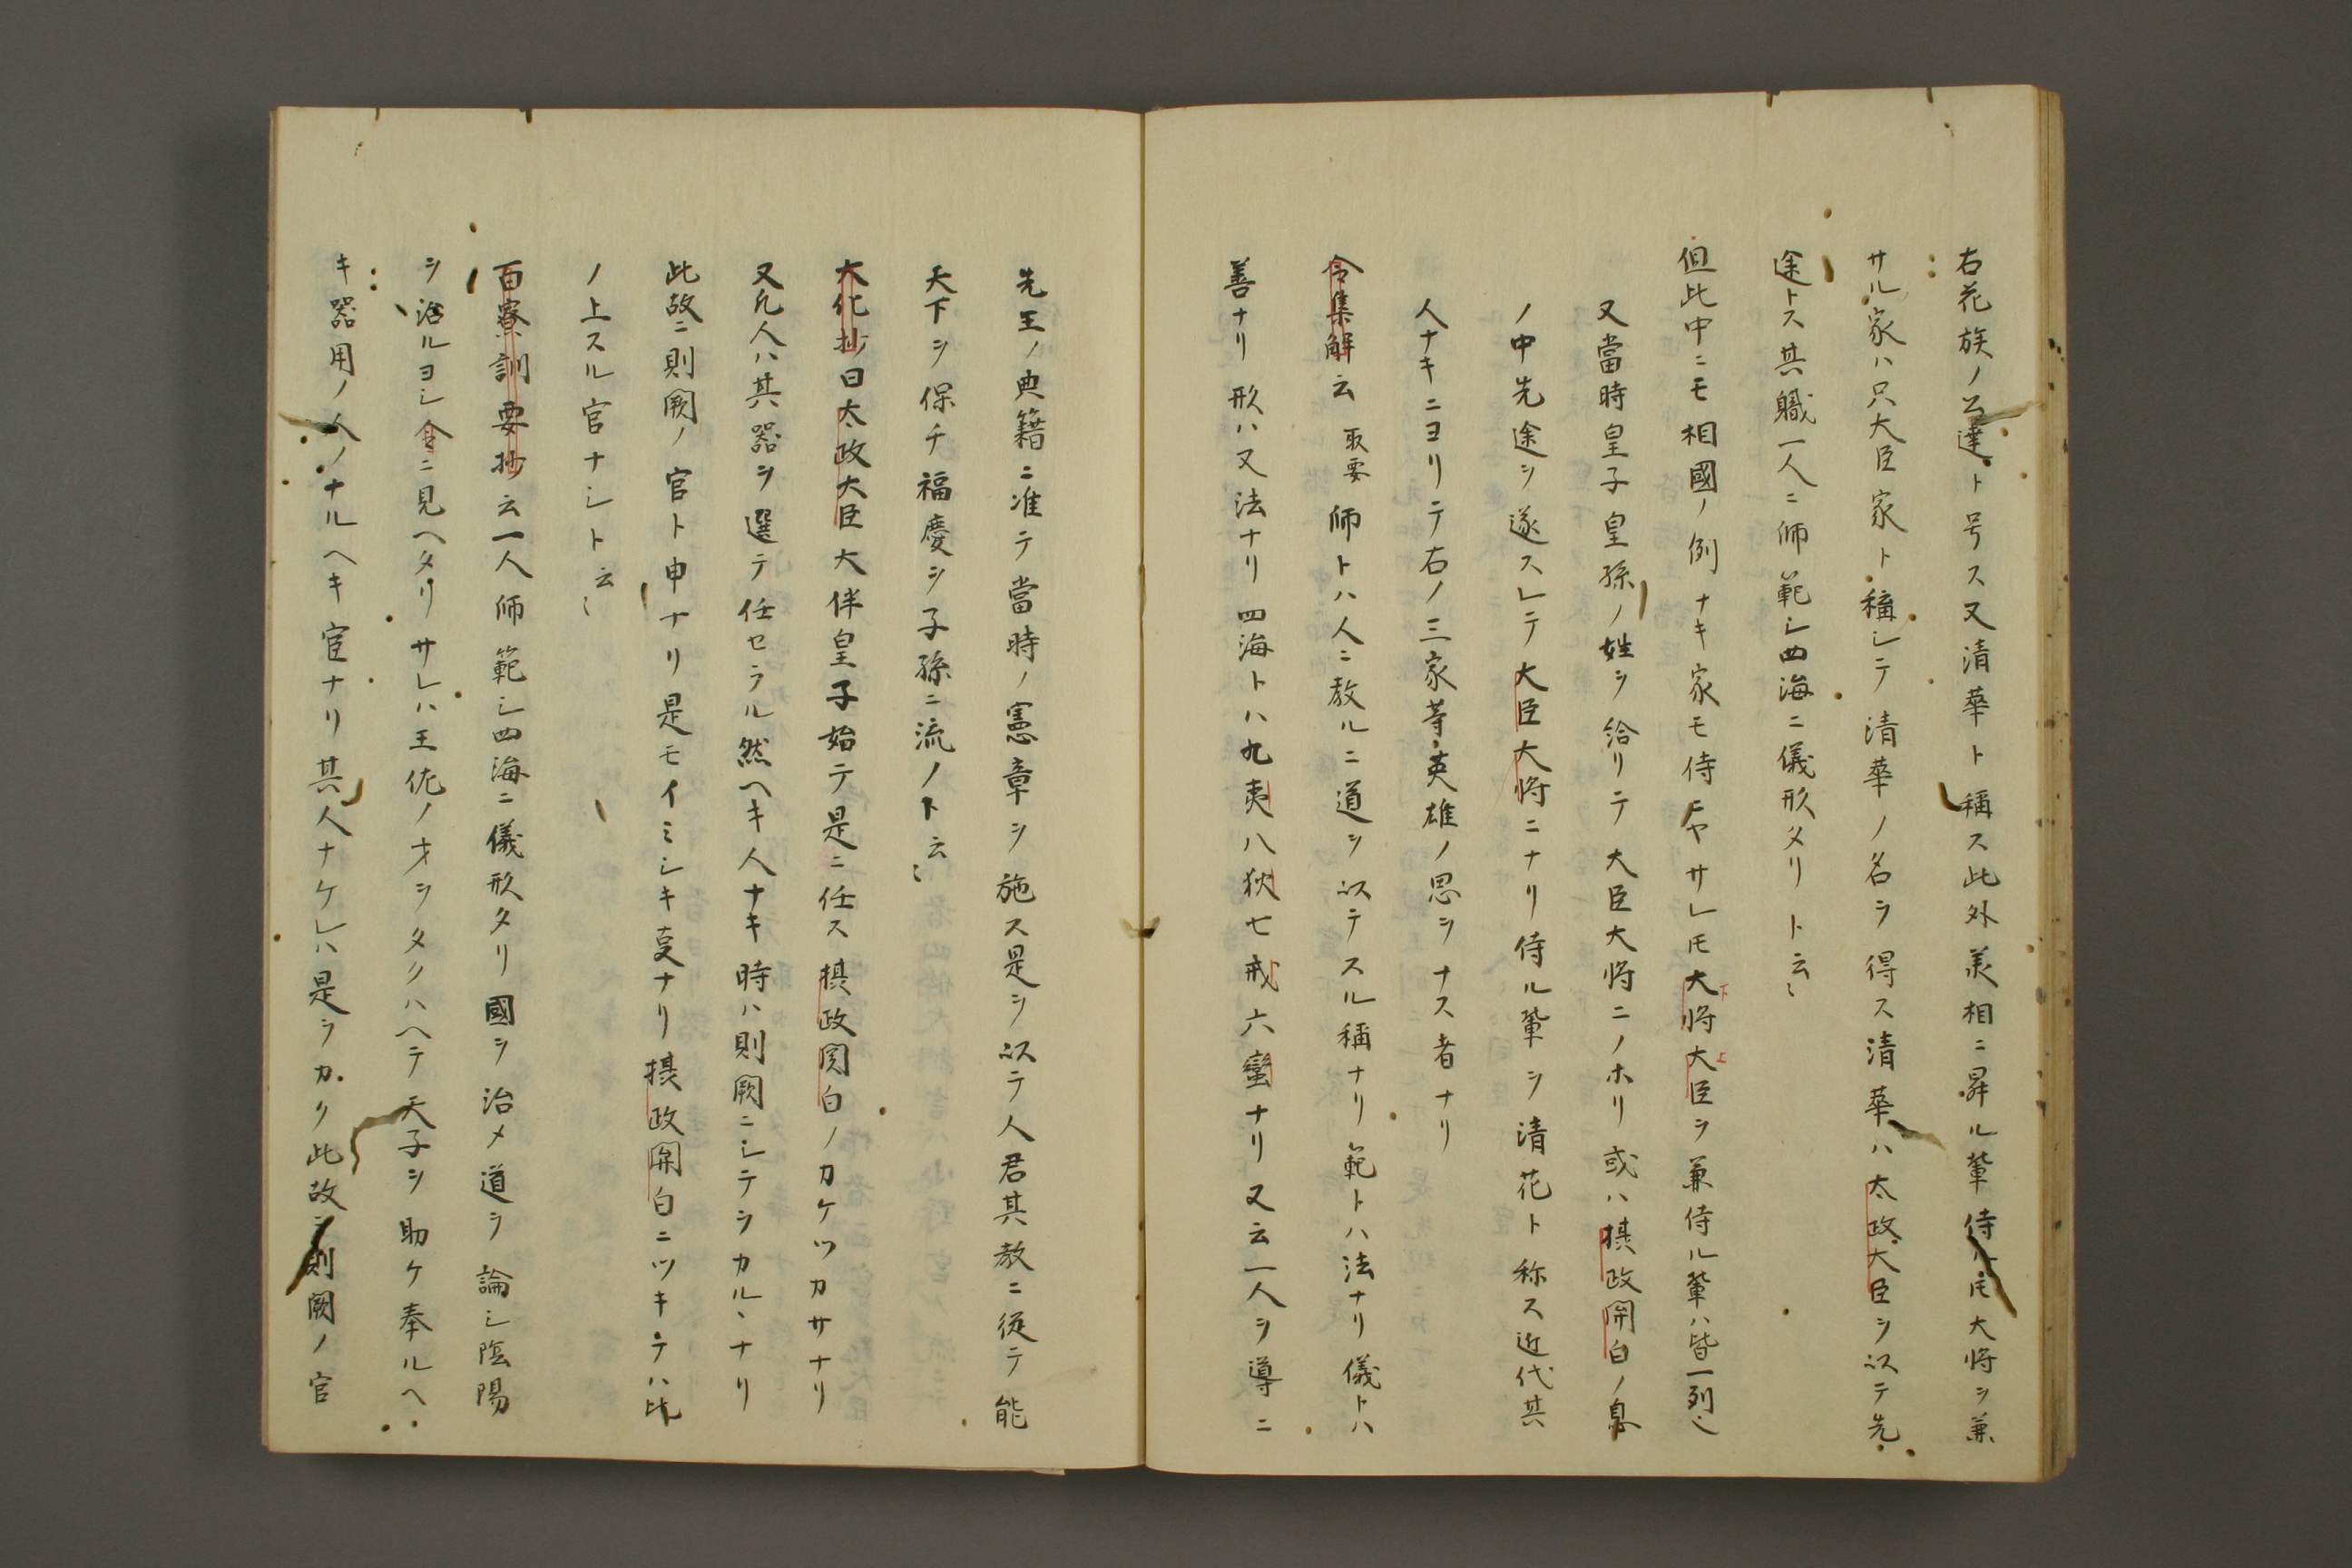 右花族ノ公達ト号ス又清華ト稱ス此外羨相ニ昇ル輩侍レ𪜈大将ヲ兼
サル家ハ只大臣家ト稱シテ清華ノ名ヲ得ス清華ハ太政大臣ヲ以テ先
途トス其職一人ニ師範シ四海ニ儀形タリト云〻
但此中ニモ相國ノ例ナキ家モ侍ニヤサレ𪜈大将大臣ヲ兼侍ル輩ハ皆一列也
又當時皇子皇孫ノ姓ヲ給リテ大臣大将ニノホリ或ハ摂政関白ノ息
ノ中先途ヲ遂スレテ大臣大将ニナリ侍ル輩ヲ清花ト称ス近代其
人ナキニヨリテ右ノ三家等英雄ノ思ヲナス者ナリ
令集解云 取要 師トハ人ニ教ルニ道ヲ以テスル稱ナリ範トハ法ナリ儀トハ
善ナリ形ハ又法ナリ四海トハ九夷八狄七戎六蠻ナリ又云一人ヲ導ニ
先王ノ典籍ニ准テ當時ノ憲章ヲ施ス是ヲ以テ人君其教ニ從テ能
天下ヲ保チ福慶ヲ子孫ニ流ノト云〻
大化抄曰太政大臣大伴皇子始テ是ニ任ス摂政関白ノカケツカサナリ
又凡人ハ其器ヲ選テ任セラル然ヘキ人ナキ時ハ則闕ニシテヲカルヽナリ
此故ニ則闕ノ官ト申ナリ是モイミシキ㕝ナリ摂政関白ニツキテハ此
ノ上スル官ナシト云〻
百寮訓要抄云一人師範シ四海ニ儀形タリ國ヲ治メ道ヲ論シ陰陽
ヲ治ルヨシ令ニ見ヘタリサレハ王佐ノ才ヲタクハヘテ天子ヲ助ケ奉ルヘ
キ器用ノ人ノナルヘキ官ナリ其人ナケレハ是ヲカク此故ニ則闕ノ官